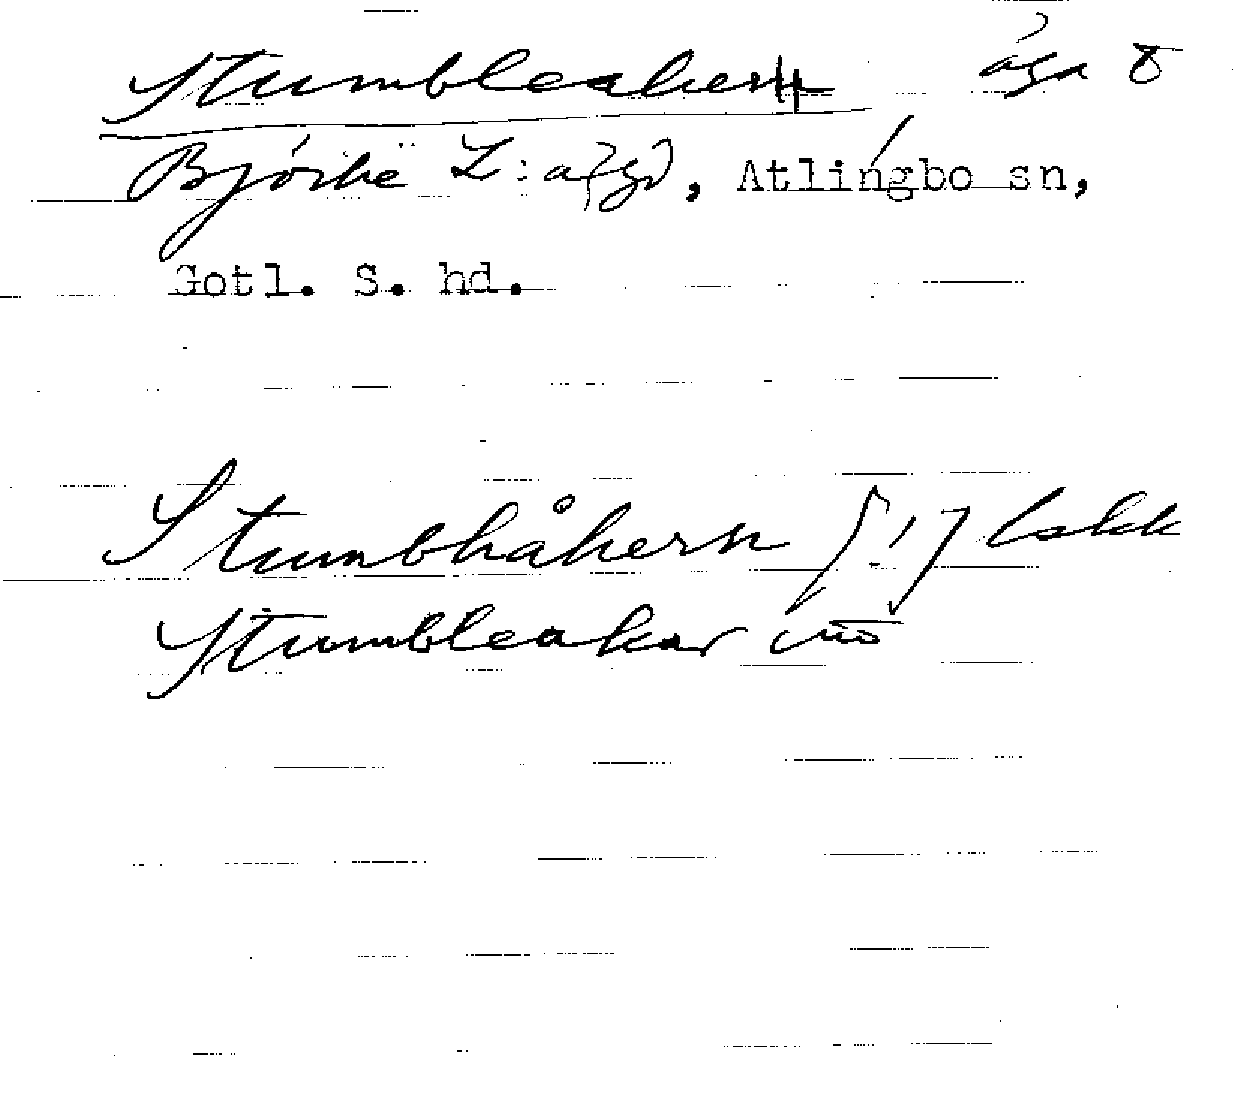 Stumbleakern åga 8
Björke L: , Atlingbo sn,
Gotl. S. hd.
Stumbhåkern [!] lskk
Stumbleakar